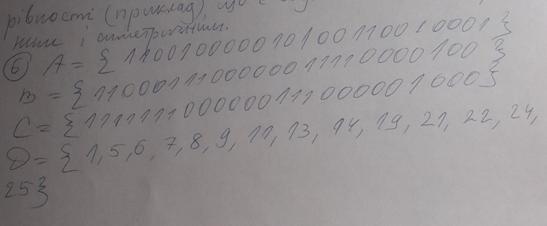 рівності (приклад), що є
ним і симетричним.
⑥ A = { 1100100000101001100100001 }
B = { 1100011100000011110000100 }
C = { 1111111000000111000001000 }
D = { 1, 5, 6, 7, 8, 9, 11, 13, 14, 19, 21, 22, 24,
25 }